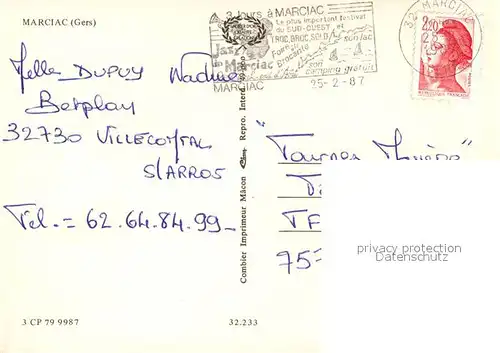 MARCIAC (Gers)
3 Jours à MARCIAC
Le plus important festival
du SUD-OUEST et
TROC, BROC, SOLD
son lac
Marciac
Foire
Brocante
son
camping gratuit
MARCIAC
25-2-87
32 MARCIAC
2,20
Melle DUPUY Nadine
Betplan
32730 VILLECOMTAL
S/ARROS
Tel. = 62.64.84.99_
"Tournez
75
Combier Imprimeur Mâcon
Repro. Interd.
privacy protection
Datenschutz
3 CP 79 9987
32.233